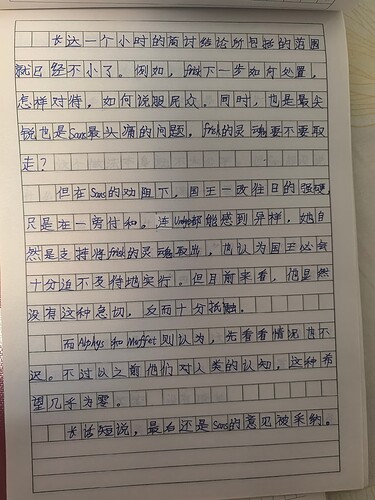 长达一个小时的商讨结论所包括的范围
就已经不小了。例如，frisk下一步如何处置，
怎样对待，如何说服民众。同时，也是最尖
锐也是Sans最头痛的问题，frisk的灵魂要不要取
走？
但在Sans的劝阻下，国王一改往日的强硬，
只是在一旁附和。连Undyne都能感到异样，她自
然是支持将frisk的灵魂取出，也认为国王必会
十分迫不及待地实行。但目前来看，他显然
没有这种急切，反而十分抵触。
而Alphys和Muffet则认为，先看看情况也不
迟。不过以之前他们对人类的认知，这种希
望几乎为零。
长话短说，最后还是Sans的意见被采纳。